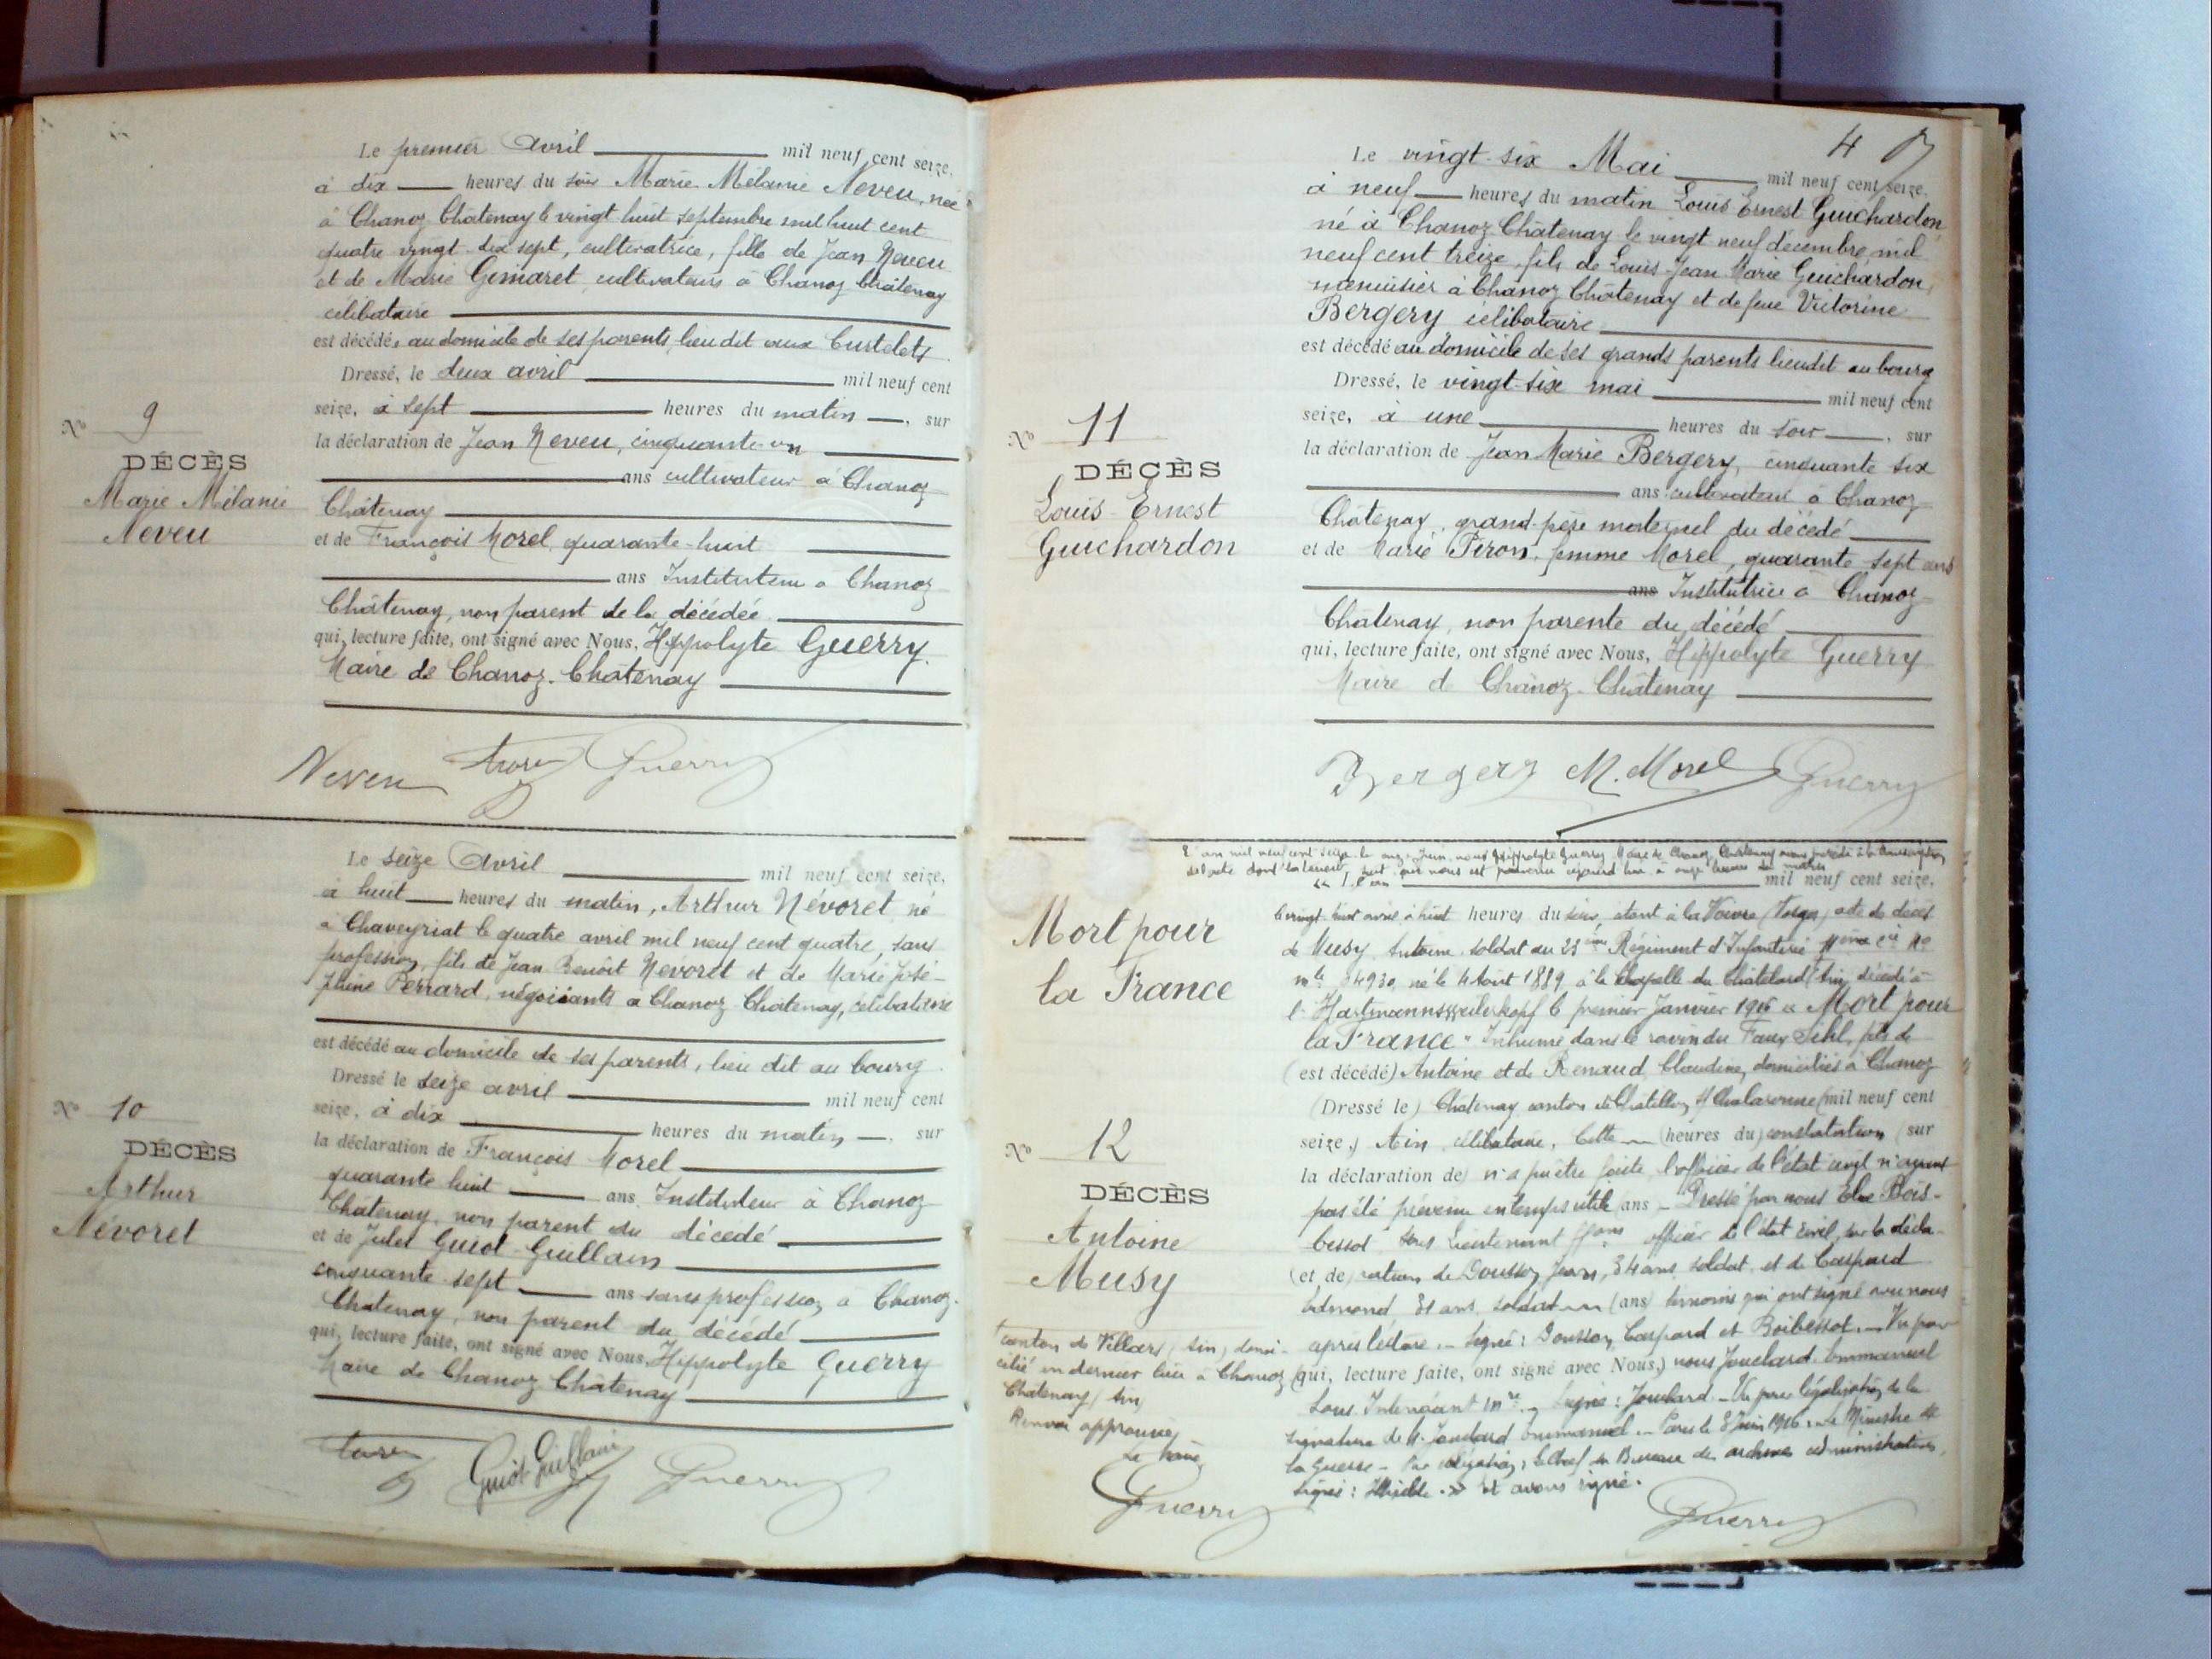 Le premier Avril mil neuf cent seize,
à dix heures du soir Marie Mélanie Neveu, née
à Chanoz-Châtenay le vingt huit septembre mil huit cent
quatre vingt-dix sept, cultivatrice, fille de Jean Neveu
et de Marie Gimaret, cultivateurs à Chanoz Châtenay
célibataire
est décédée au domicile de ses parents, lieu dit aux Curtelets.
Dressé, le deux avril mil neuf cent
seize, à sept heures du matin, sur
la déclaration de Jean Neveu, cinquante-un
ans cultivateur à Chanoz
Châtenay
et de François Morel, quarante-huit
ans Instituteur à Chanoz
Châtenay, non parent de la décédée
qui, lecture faite, ont signé avec Nous, Hippolyte Guerry.
Maire de Chanoz-Châtenay
Neveu Morel Guerry
No 9
DÉCÈS
Marie Mélanie
Neveu
Le seize Avril mil neuf cent seize,
à huit heures du matin, Arthur Névoret, né
à Chaveyriat le quatre avril mil neuf cent quatre, sans
profession, fils de Jean Benoît Névoret et de Marie José-
phine Perrard, négociants à Chanoz Châtenay, célibataire
est décédé au domicile de ses parents, lieu dit au bourg.
Dressé le seize avril mil neuf cent
seize, à dix heures du matin, sur
la déclaration de François Morel
quarante huit ans Instituteur à Chanoz
Châtenay, non parent du décédé
et de Jules Guiot-Guillain
cinquante-sept ans sans profession, à Chanoz-
Châtenay, non parent du décédé
qui, lecture faite, ont signé avec Nous, Hippolyte Guerry
Maire de Chanoz Châtenay
Morel Guiot Guillain Guerry
No 10
DÉCÈS
Arthur
Névoret
4
Le vingt-six Mai mil neuf cent seize,
à neuf heures du matin Louis Ernest Guichardon,
né à Chanoz-Châtenay le vingt-neuf décembre mil
neuf cent treize, fils de Louis-Jean Marie Guichardon,
menuisier à Chanoz Châtenay et de feue Victorine
Bergery célibataire
est décédé au domicile de ses grands parents lieudit au bourg
Dressé, le vingt-six mai mil neuf cent
seize, à une heures du soir, sur
la déclaration de Jean Marie Bergery, cinquante six
ans cultivateur à Chanoz
Châtenay, grand-père maternel du décédé
et de Marie Piron, femme Morel, quarante-sept ans
ans Institutrice à Chanoz
Châtenay, non parente du décédé
qui, lecture faite, ont signé avec Nous, Hippolyte Guerry
Maire de Chanoz-Châtenay
Bergery M. Morel Guerry
No 11
DÉCÈS
Louis-Ernest
Guichardon
L'an mil neuf cent seize le onze Juin nous Hippolyte Guerry, Maire de Chanoz Châtenay avons procédé à la transcription
de l'acte dont la teneur suit, qui nous est parvenu aujourd'hui à onze heures du matin
L'an mil neuf cent seize,
le vingt-huit avril à huit heures du soir, étant à la Voivre (Vosges) acte de décès
de Musy Antoine soldat au 23ème Régiment d'Infanterie 11ème Cie No
mle 14930, né le 4 Août 1889 à la Chapelle du Châtelard (Ain) décédé à
l'Hartmannswillerkopf le premier Janvier 1916 "Mort pour
la France" Inhumé dans le ravin du Faux Sihl, fils de
(est décédé) Antoine et de Renaud Claudine, domiciliés à Chanoz
(Dressé le) Châtenay canton de Châtillon s/ Chalaronne (mil neuf cent
seize,) Ain, célibataire. Cette (heures du) constatation (sur
la déclaration de) n'a pu être faite, l'officier de l'état civil n'ayant
pas été prévenu en temps utile (ans) — Dressé par nous Elie Bois-
bessot sous lieutenant ffons officier de l'état civil, sur la décla-
(et de) ration de Dousson Jean, 34 ans, soldat et de Caspard
Edmond 31 ans, soldat (ans) témoins qui ont signé avec nous
après lecture. — Signé: Dousson, Caspard et Boibessot. — Vu par
(qui, lecture faite, ont signé avec Nous,) nous Jouclard Emmanuel
Sous Intendant mre. — Signé: Jouclard — Vu pour légalisation de la
signature de M. Jouclard Emmanuel. — Paris le 3 Juin 1916. — Le Ministre de
la Guerre — Par délégation, le Chef du Bureau des archives administratives,
signé: Illisible. » Et avons signé.
Guerry
Mort pour
la France
No 12
DÉCÈS
Antoine
Musy
canton de Villars, Ain, domi-
cilié en dernier lieu à Chanoz
Châtenay, Ain
Renvoi approuvé
Le Maire
Guerry